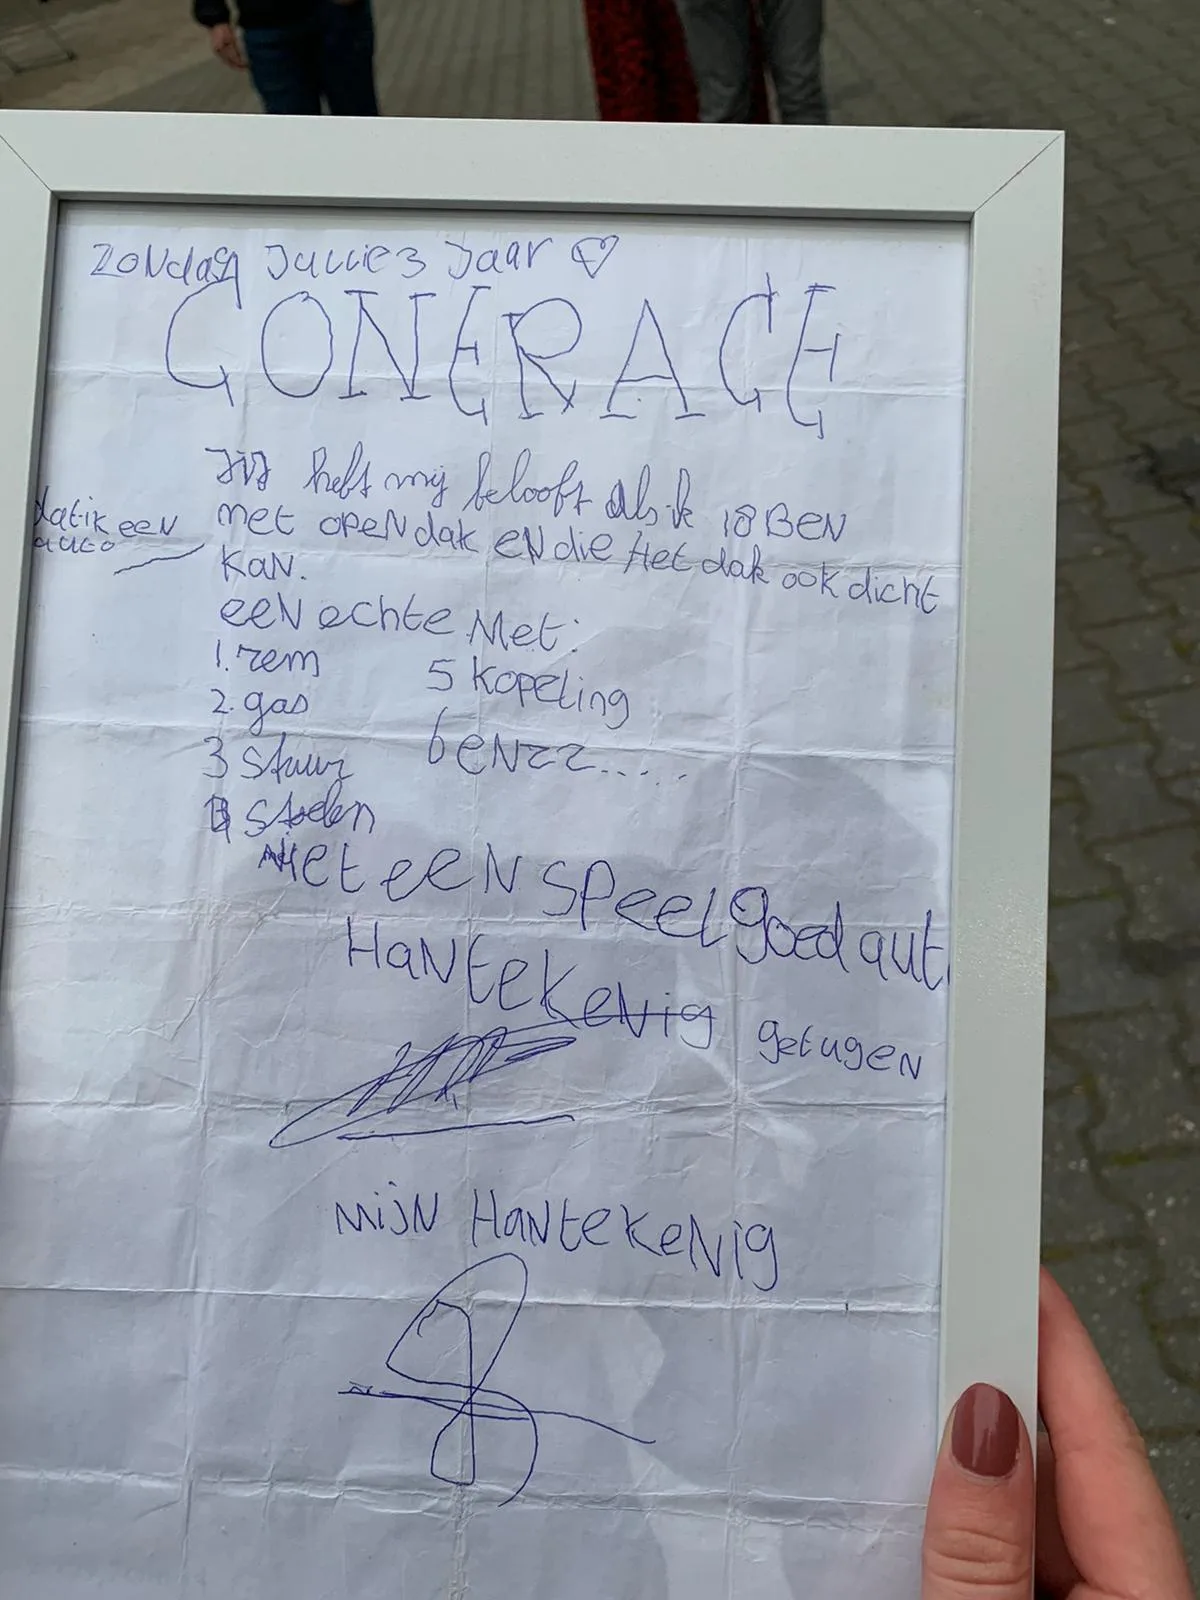 Zondag Jullie 3 Jaar
CONERACE
Jij heft mij belooft als ik 18 BEN
dat ik een
auto
met open dak en die Het dak ook dicht
kan.
een echte Met:
1. rem
2. gas
3 stuur
4 stoelen
5 Kopeling
6 enzz.....
Niet een speelgoed aut
Hantekenig
getugen
Mijn Hantekenig